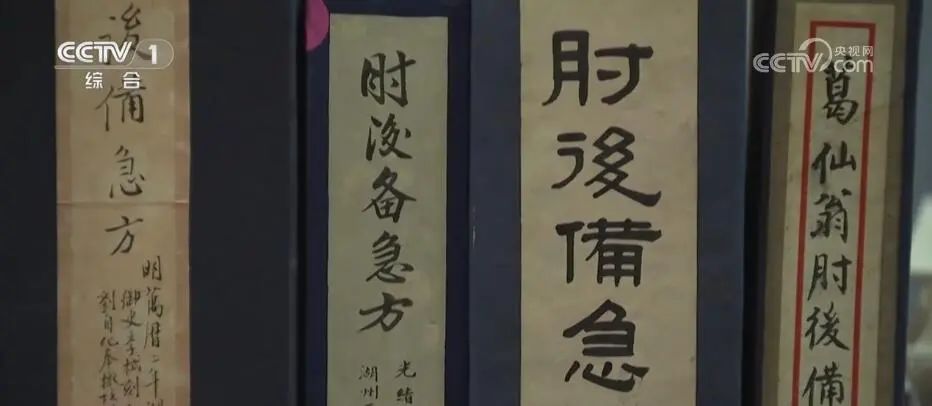 CCTV 1
综合
央视网
CCTV.com
後備急方
明萬曆二年
御史李栻刻
肘後备急方
光緒
湖州
肘後備急
葛仙翁肘後備